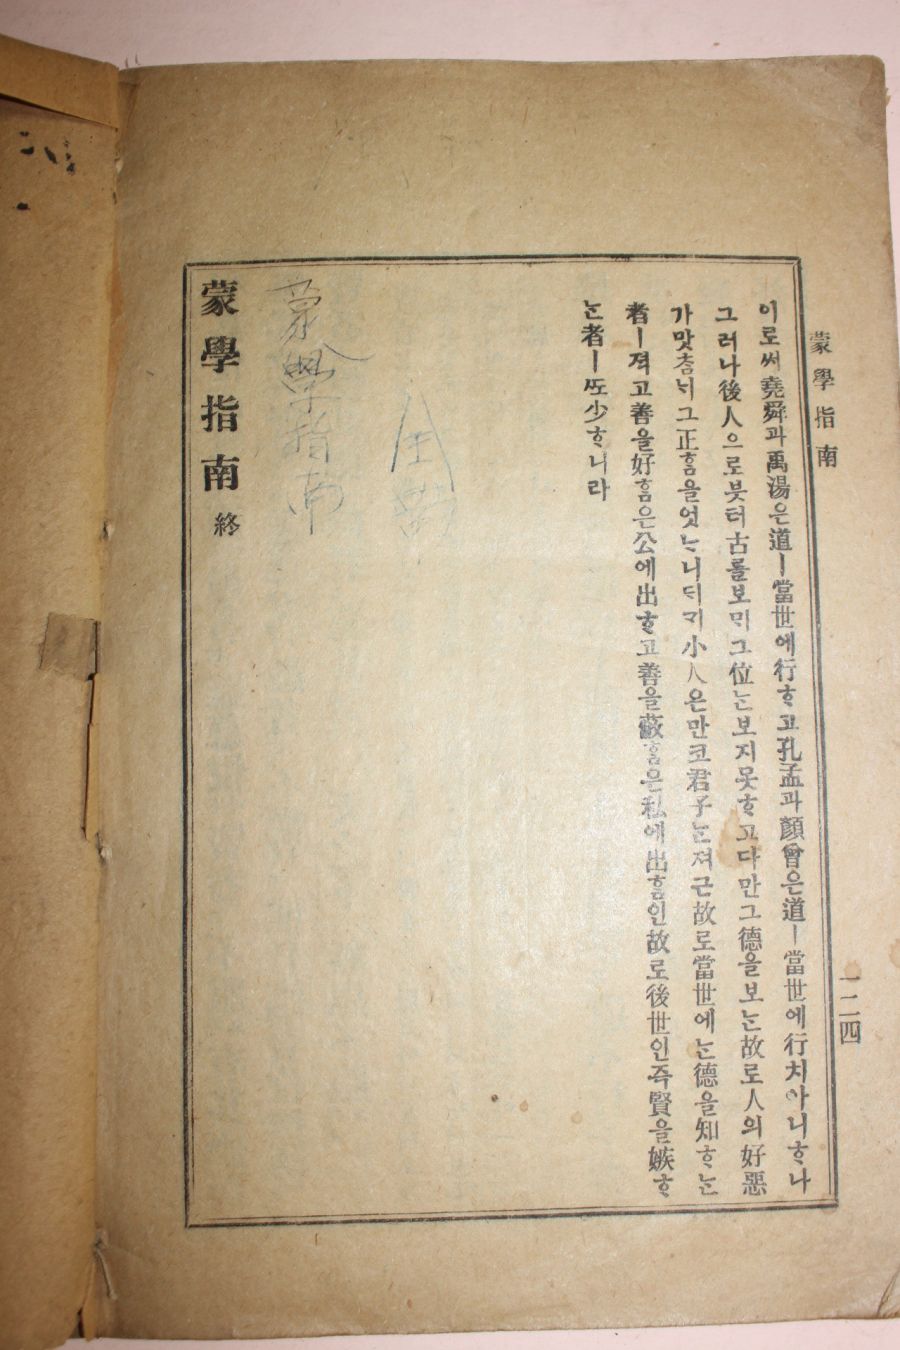 蒙學指南
一二四
이로써堯舜과禹湯은道ㅣ當世에行ᄒᆞ고孔孟과顏曾은道ㅣ當世에行치아니ᄒᆞ나
그러나後人으로붓터古를보ᄆᆡ그位ᄂᆞᆫ보지못ᄒᆞ고다만그德을보ᄂᆞᆫ故로人의好惡
가맛ᄎᆞᆷᄂᆡ그正ᄒᆞᆷ을엇ᄂᆞ니ᄃᆡ기小人은만코君子ᄂᆞᆫ져근故로當世에ᄂᆞᆫ德을知ᄒᆞᄂᆞᆫ
者ㅣ젹고善을好ᄒᆞᆷ은公에出ᄒᆞ고善을蔽ᄒᆞᆷ은私에出ᄒᆞᆷ인故로後世인즉賢을嫉ᄒᆞ
ᄂᆞᆫ者ㅣᄯᅩ少ᄒᆞ니라
蒙學指南
蒙學指南 終